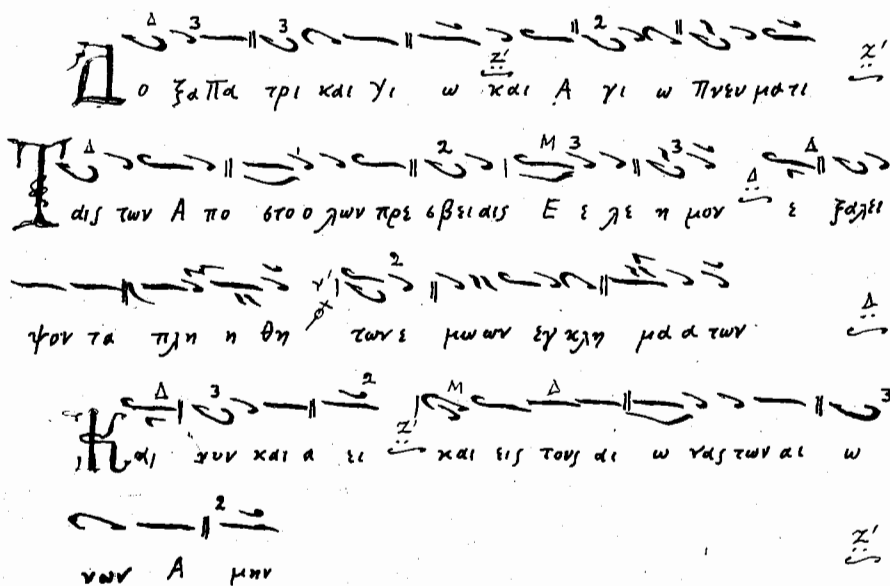 Δο ξα Πα τρι και Υι ω και Α γι ω Πνευ ματι
Ταις των Α πο στο ο λων πρε σβειαις Ε ε λε η μον ε ξαλει
ψον τα πλη η θη των ε μω ων εγ κλη μα α των
Και νυν και α ει και εις τους αι ω νας των αι ω
νων Α μην